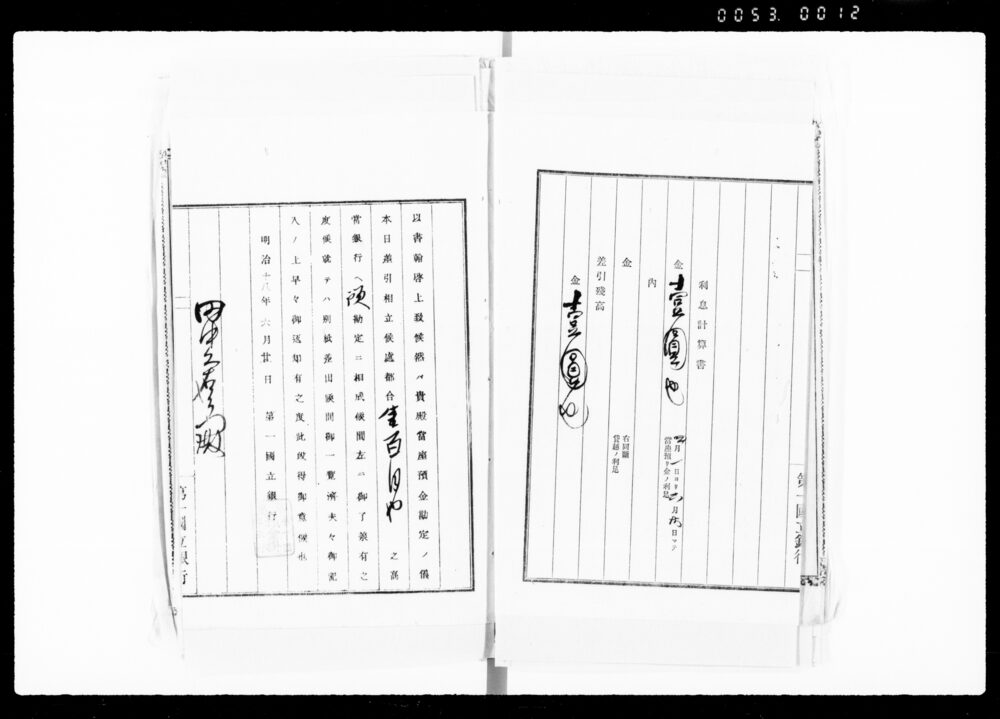 0053.0012
第一國立銀行
利息計算書
金 十壹圓也
四月一日ヨリ六月 日マテ
當座預リ金ノ利足
内
金
右同斷
貸越ノ利足
差引殘高
金 十壹圓也
以書翰啓上致候然ハ貴殿當座預金勘定ノ儀
本日差引相立候處都合金百 也之高
當銀行ヘ預勘定ニ相成候間左ニ御了簽有之
度候就テハ別紙差出候間御一覽濟夫々御記
入ノ上早々御返却有之度此段得御意候也
明治十八年六月廿日 第一國立銀行
田中久右衛門殿
第一國立銀行